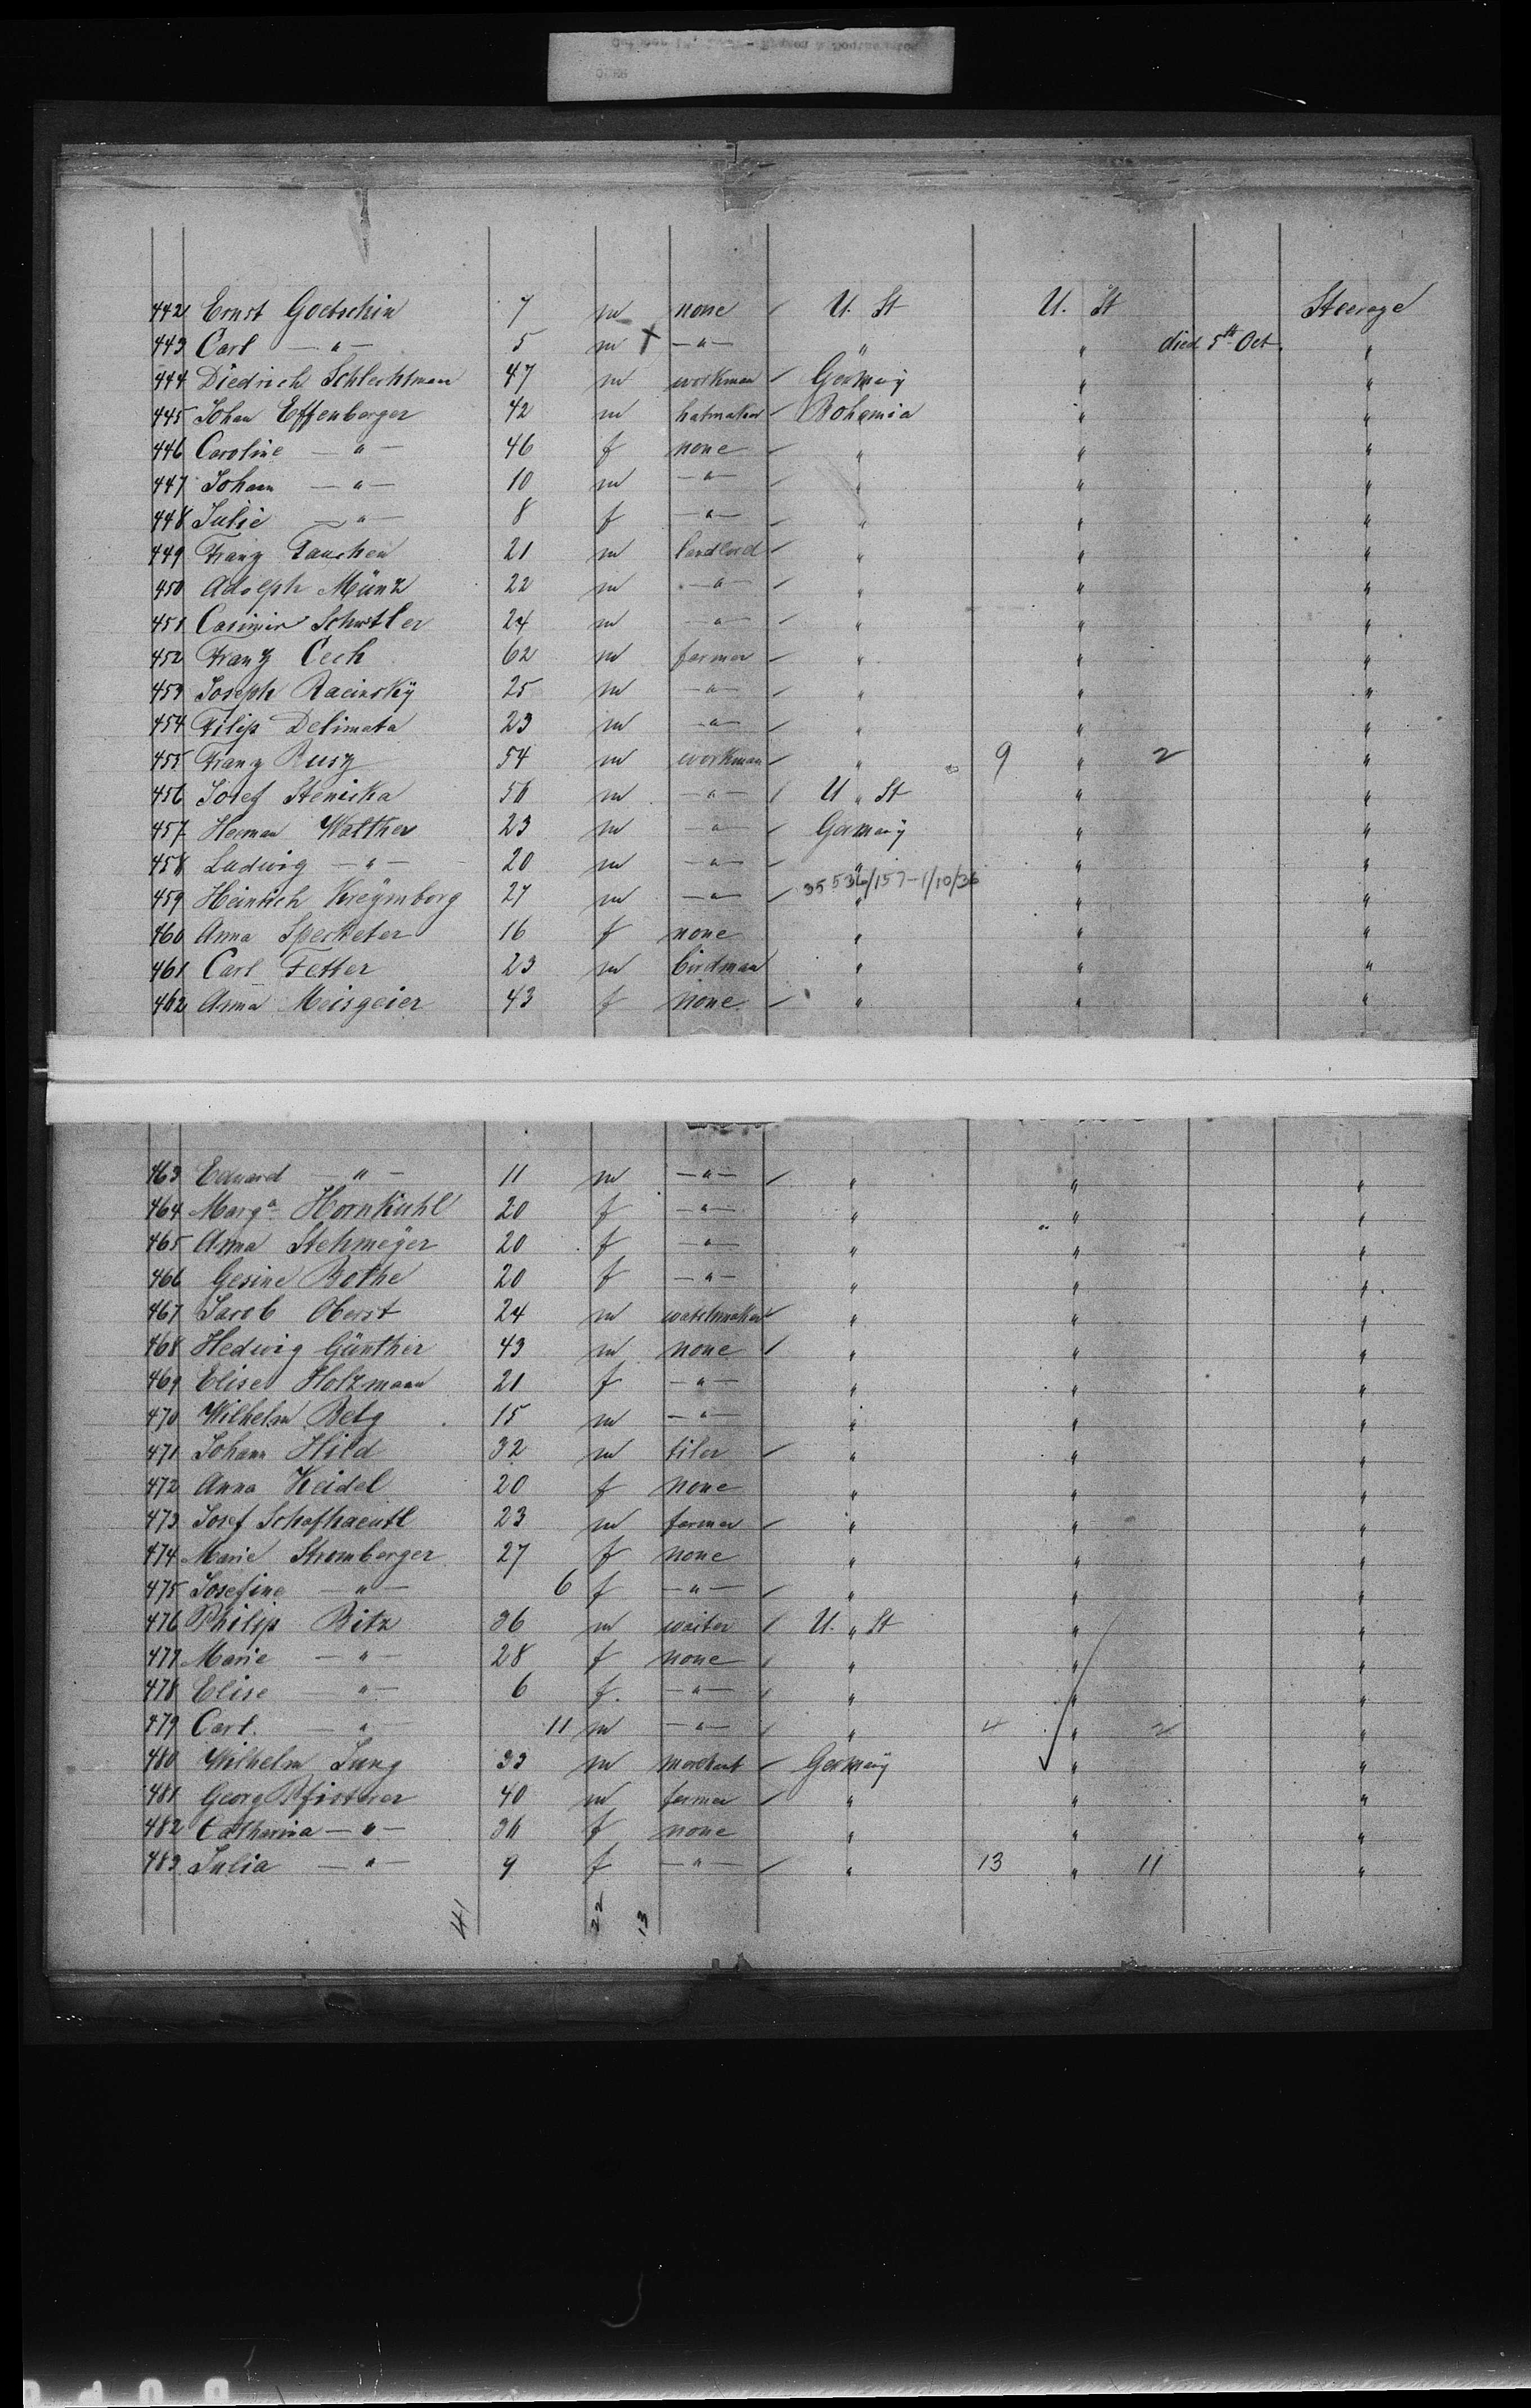 442 Ernst Goetschin 7 m none U. St U. St Steerage
443 Carl —"— 5 m X —"— " " died 5th Oct. "
444 Diedrich Schlechtman 47 m workman Germany " "
445 Johan Effenberger 42 m hatmaker Bohemia " "
446 Caroline —"— 46 f none " " "
447 Johann —"— 10 m —"— " " "
448 Julie —"— 8 f —"— " " "
449 Franz Tauchen 21 m landlord " " "
450 Adolph Münz 22 m —"— " " "
451 Casimir 24 m —"— " " "
452 Franz Cech 62 m farmer " " "
453 Joseph Racinský 25 m —"— " " "
454 Filip Delimata 23 m —"— " " "
455 Franz Rusz 54 m workman " 9 " 2 "
456 Josef Steniska 56 m —"— U " St " "
457 Herman Walther 23 m —"— Germany " "
458 Ludwig —"— 20 m —"— " " "
35536/157-1/10/36
459 Heinrich Kreymborg 27 m —"— " " "
460 Anna Specketer 16 f none " " "
461 Carl Fetter 23 m birdman " " "
462 Anna Meisgeier 43 f none " " "
463 Eduard —"— 11 m —"— " " "
464 Marga Hornkuhl 20 f —"— " " "
465 Anna Stehmeyer 20 f —"— " " "
466 Gesine Bothe 20 f —"— " " "
467 Jacob Oberst 24 m watchmaker " " "
468 Hedwig Günther 43 m none " " "
469 Elise Holzmann 21 f —"— " " "
470 Wilhelm Betz 15 m —"— " " "
471 Johann Hild 32 m tiler " " "
472 Anna Keidel 20 f none " " "
473 Josef Schafhaeutl 23 m farmer " " "
474 Marie Stromberger 27 f none " " "
475 Josefine —"— 6 f —"— " " "
476 Philip Bitz 36 m waiter U. " St " "
477 Marie —"— 28 f none " " "
478 Elise —"— 6 f. —"— " " "
479 Carl. —"— 11 m —"— " 4 " 2 "
480 Wilhelm Jung 33 m merchant Germany " "
481 Georg Pfisterer 40 m farmer " " "
482 Catharina —"— 36 f none " " "
483 Julia —"— 9 f —"— " 13 " 11 "
41 22 13